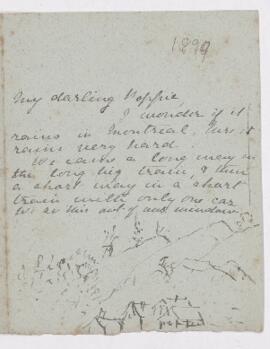 1899
My darling Koppie,
I wonder if it
rains in Montreal, here it
rains very hard.
We came a long way in
the long big train, & then
a short way in a short
train with only one car.
We see this out of our window